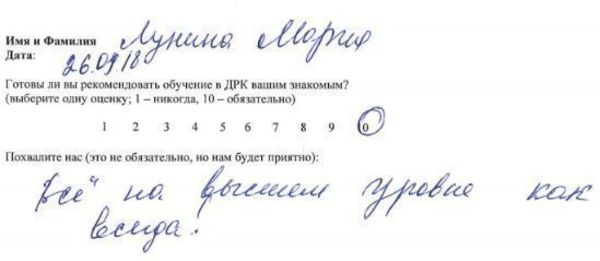 Имя и Фамилия Лунина Мария
Дата: 26.09.18
Готовы ли вы рекомендовать обучение в ДРК вашим знакомым?
(выберите одну оценку; 1 – никогда, 10 – обязательно)
1 2 3 4 5 6 7 8 9 10
Похвалите нас (это не обязательно, но нам будет приятно):
Всё на высшем уровне как
всегда.